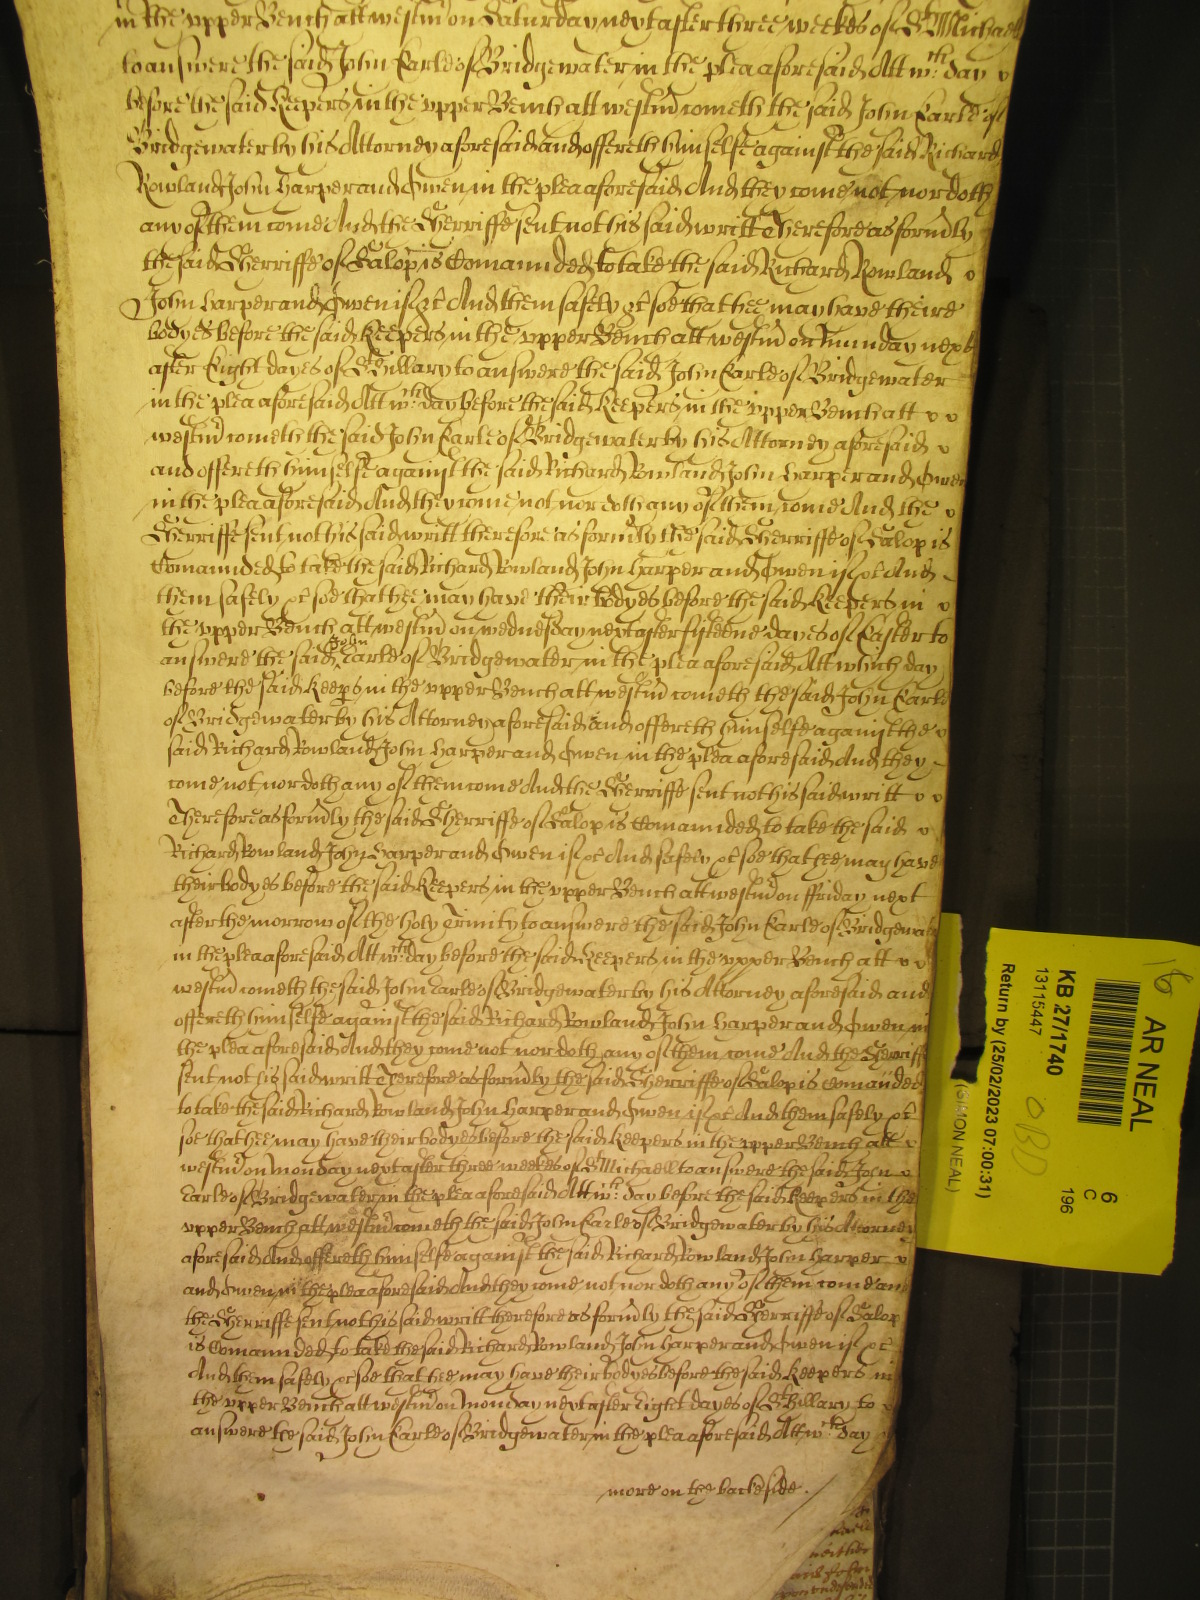 in the vpper Bench att westm̃ on Saturday next after three weekes of St Michaell
to answere the said John Earle of Bridgewater in the plea aforesaid Att wch day
before the said Keepers in the vpper Bench att westm̃ cometh the said John Earle of
Bridgewater by his Attorney aforesaid and offereth himselfe against the said Richard
Rowland John Harper and Owen in the plea aforesaid And they come not nor doth
any of them come And the Sherriffe sent not his said writt Therefore as form̃ly
the said Sherriffe of Salop is Comannded to take the said Richard Rowland
John Harper and Owen if &c And them safely &c soe that hee may have theire
bodyes before the said Keepers in the vpper Bench att westm̃ on Munday next
after Eight dayes of St Hillary to answere the said John Earle of Bridgewater
in the plea aforesaid Att wch day before the said Keepers in the vpper Bench att
westm̃ cometh the said John Earle of Bridgewater by his Attorney aforesaid
and offereth himselfe against the said Richard Rowland John Harper and Owen
in the plea aforesaid And they come not nor doth any of them come And the
Sherriffe sent not his said writt therefore as form̃ly the said Sherriffe of Salop is
Comannded to take the said Richard Rowland John Harper and Owen if &c And
them safely &c soe that hee may have their bodyes before the said Keepers in
the vpper Bench att westm̃ on wednesday next after fifteene dayes of Easter to
answere the said John Earle of Bridgewater in the plea aforesaid Att which day
before the said Keepers in the vpper Bench att westm̃ cometh the said John Earle
of Bridgewater by his Attorney aforesaid and offereth himselfe against the
said Richard Rowland John Harper and Owen in the plea aforesaid And they
come not nor doth any of them come And the Sherriffe sent not his said writt
Therefore as form̃ly the said Sherriffe of Salop is Comannded to take the said
Richard Rowland John Harper and Owen if &c And safely &c soe that hee may have
their bodyes before the said Keepers in the vpper Bench att westm̃ on ffriday next
after the morrow of the holy Trinity to answere the said John Earle of Bridgewater
in the plea aforesaid Att wch day before the said Keepers in the vpper Bench att
westm̃ cometh the said John Earle of Bridgewater by his Attorney aforesaid and
offereth himselfe against the said Richard Rowland John Harper and Owen in
the plea aforesaid And they come not nor doth any of them come And the Sherriffe
sent not his said writt Therefore as form̃ly the said Sherriffe of Salop is comannded
to take the said Richard Rowland John Harper and Owen if &c And them safely &c
soe that hee may have their bodyes before the said Keepers in the vpper Bench att
westm̃ on Monday next after three weekes of St Michaell to answere the said John
Earle of Bridgewater in the plea aforesaid Att wch day before the said Keepers in the
vpper Bench att westm̃ cometh the said John Earle of Bridgewater by his Attorney
aforesaid And offereth himselfe against the said Richard Rowland John Harper
and Owen in the plea aforesaid And they come not nor doth any of them come and
the Sherriffe sent not his said writt therefore as form̃ly the said Sherriffe of Salop
is Comannded to take the said Richard Rowland John Harper and Owen if &c
And them safely &c soe that hee may have their bodyes before the said Keepers in
the vpper Bench att westm̃ on Monday next after Eight dayes of St Hillary to
answere the said John Earle of Bridgewater in the plea aforesaid Att wch day
more on the backside.
16
AR NEAL
6
C
196
KB 27/1740
13115447
Return by (25/02/2023 07:00:31)
(SIMON NEAL)
OBD